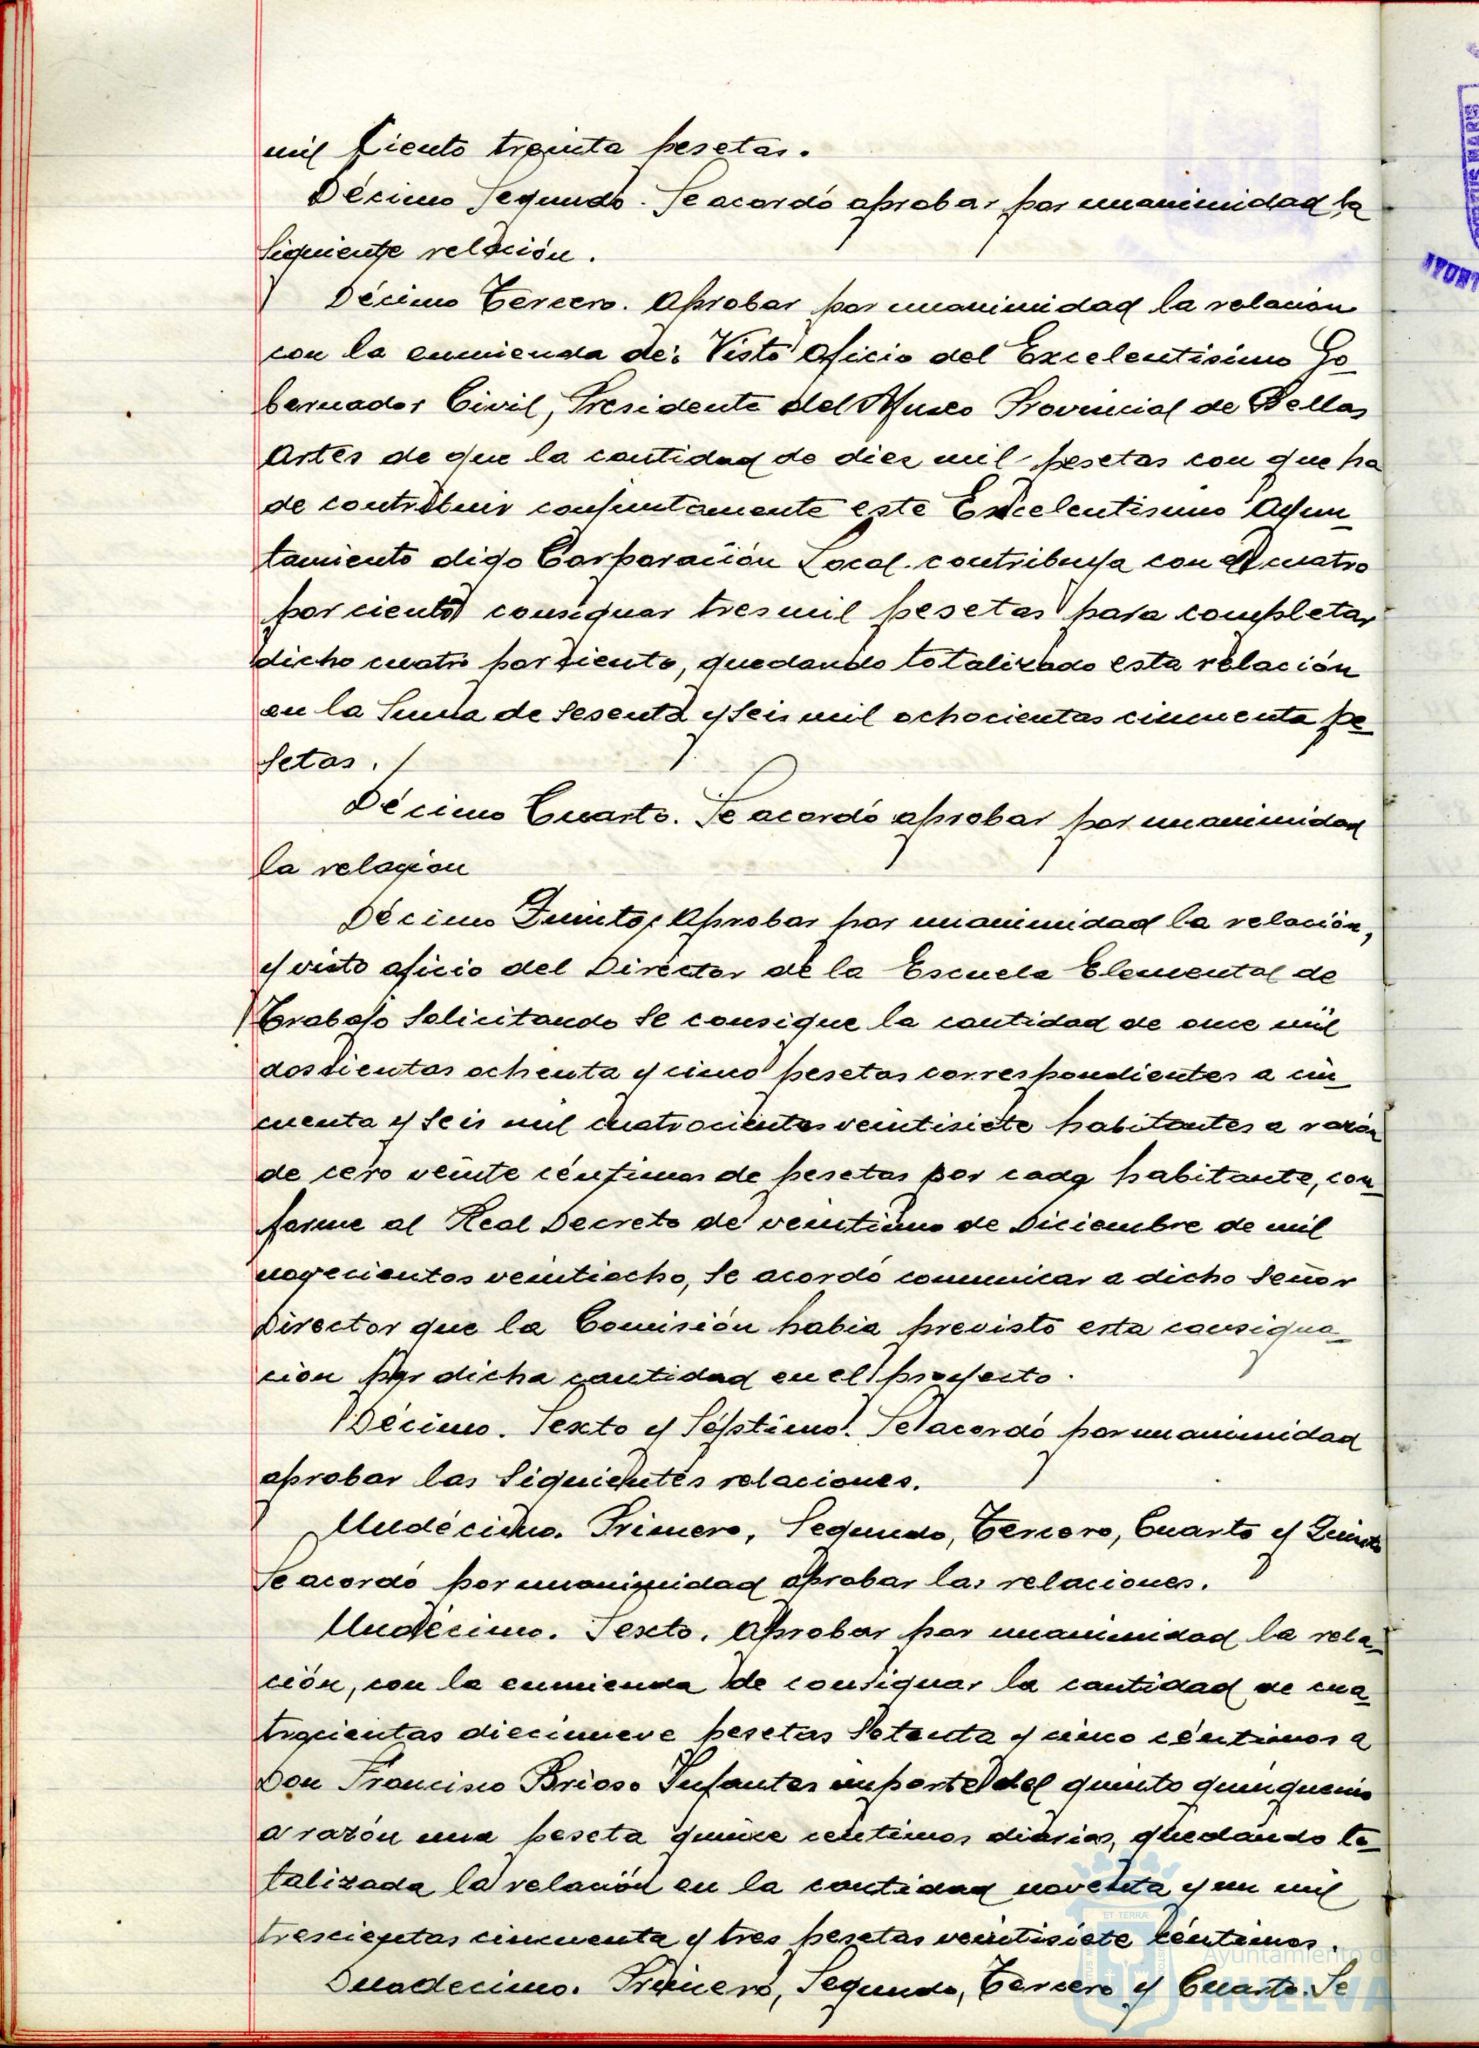 mil Ciento treinta pesetas.
Décimo Segundo. Se acordó aprobar por unanimidad la
Siguiente relación.
Décimo Tercero. Aprobar por unanimidad la relación
con la enmienda de: Visto Oficio del Excelentísimo Go-
bernador Civil, Presidente del Museo Provincial de Bellas
Artes de que la cantidad de diez mil pesetas con que ha
de contribuir conjuntamente este Excelentisimo Ayun-
tamiento digo Corporación Local contribuya con el cuatro
por ciento consignar tres mil pesetas para completar
dicho cuatro por ciento, quedando totalizado esta relación
en la Suma de Sesenta y Seis mil ochocientas cincuenta pe-
setas.
Décimo Cuarto. Se acordó aprobar por unanimidad
la relación
Décimo Quinto. Aprobar por unanimidad la relación,
y visto oficio del Director de la Escuela Elemental de
Trabajo Solicitando Se consigue la cantidad de once mil
doscientas ochenta y cinco pesetas correspondientes a cin-
cuenta y Seis mil cuatrocientos veintisiete habitantes a razón
de cero veinte céntimos de pesetas por cada habitante, con-
forme al Real Decreto de veintiuno de Diciembre de mil
novecientos veintiocho, Se acordó comunicar a dicho Señor
Director que la Comisión habia previsto esta consigna-
ción por dicha cantidad en el proyecto.
Décimo. Sexto y Séptimo. Se acordó por unanimidad
aprobar las Siguientes relaciones.
Undécimo. Primero, Segundo, Tercero, Cuarto y Quinto
Se acordó por unanimidad aprobar las relaciones.
Undécimo. Sexto. Aprobar por unanimidad la rela-
ción, con la enmienda de consignar la cantidad de cua-
trocientas diecinueve pesetas Setenta y cinco céntimos a
Don Francisco Brioso Infantes importe del quinto quinquenio
a razón una peseta quince centimos diarios, quedando to-
talizada la relación en la cantidad noventa y un mil
trescientas cincuenta y tres pesetas veintisiete céntimos.
Duodecimo. Primero, Segundo, Tercero y Cuarto. Se
ET TERRÆ
Ayuntamiento de
HUELVA